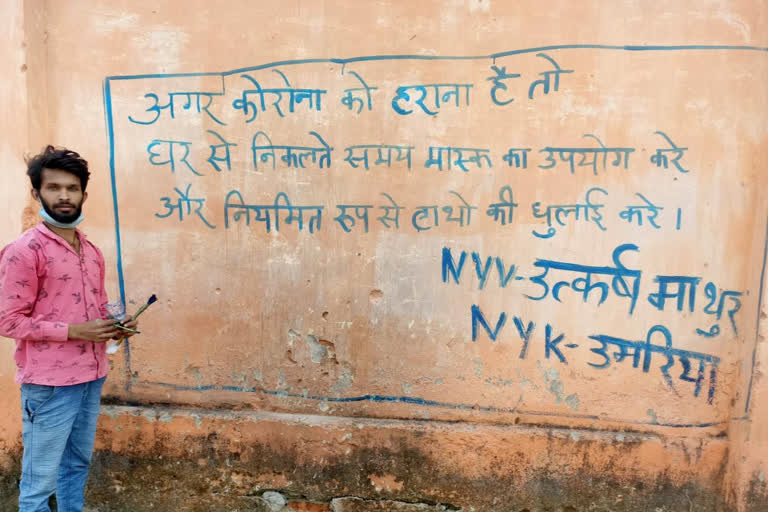 अगर कोरोना को हराना है तो
घर से निकलते समय मास्क का उपयोग करे
और नियमित रूप से हाथो की धुलाई करे।
NYV-उत्कर्ष माथुर
NYK-उमरिया